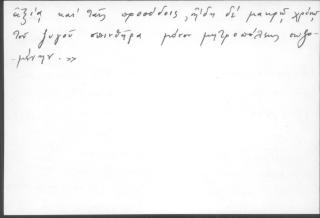 ἀξίᾳ καὶ ταῖς προσόδοις, ἤδη δὲ μακρῷ χρόνῳ
τοῦ ζυγοῦ σπινθῆρα μόνον μητροπόλεως σωζο-
-μένην.»